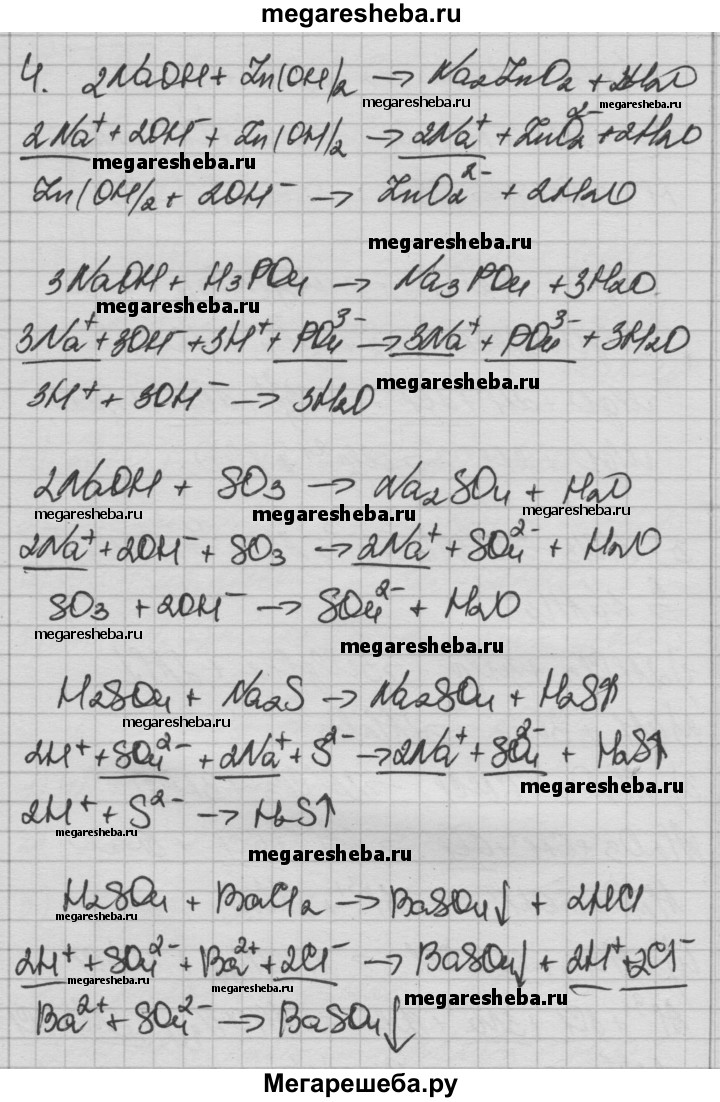 megaresheba.ru
4. 2NaOH + Zn(OH)2 → Na2ZnO2 + 2H2O
megaresheba.ru megaresheba.ru
2Na⁺ + 2OH⁻ + Zn(OH)2 → 2Na⁺ + ZnO2²⁻ + 2H2O
megaresheba.ru
Zn(OH)2 + 2OH⁻ → ZnO2²⁻ + 2H2O
megaresheba.ru
3NaOH + H3PO4 → Na3PO4 + 3H2O
megaresheba.ru
3Na⁺ + 3OH⁻ + 3H⁺ + PO4³⁻ → 3Na⁺ + PO4³⁻ + 3H2O
megaresheba.ru
3H⁺ + 3OH⁻ → 3H2O
2NaOH + SO3 → Na2SO4 + H2O
megaresheba.ru megaresheba.ru megaresheba.ru
2Na⁺ + 2OH⁻ + SO3 → 2Na⁺ + SO4²⁻ + H2O
SO3 + 2OH⁻ → SO4²⁻ + H2O
megaresheba.ru
megaresheba.ru
H2SO4 + Na2S → Na2SO4 + H2S↑
megaresheba.ru
2H⁺ + SO4²⁻ + 2Na⁺ + S²⁻ → 2Na⁺ + SO4²⁻ + H2S↑
megaresheba.ru
2H⁺ + S²⁻ → H2S↑
megaresheba.ru
megaresheba.ru
H2SO4 + BaCl2 → BaSO4↓ + 2HCl
megaresheba.ru
2H⁺ + SO4²⁻ + Ba²⁺ + 2Cl⁻ → BaSO4↓ + 2H⁺ + 2Cl⁻
megaresheba.ru megaresheba.ru
megaresheba.ru
Ba²⁺ + SO4²⁻ → BaSO4↓
Мегарешеба.ру